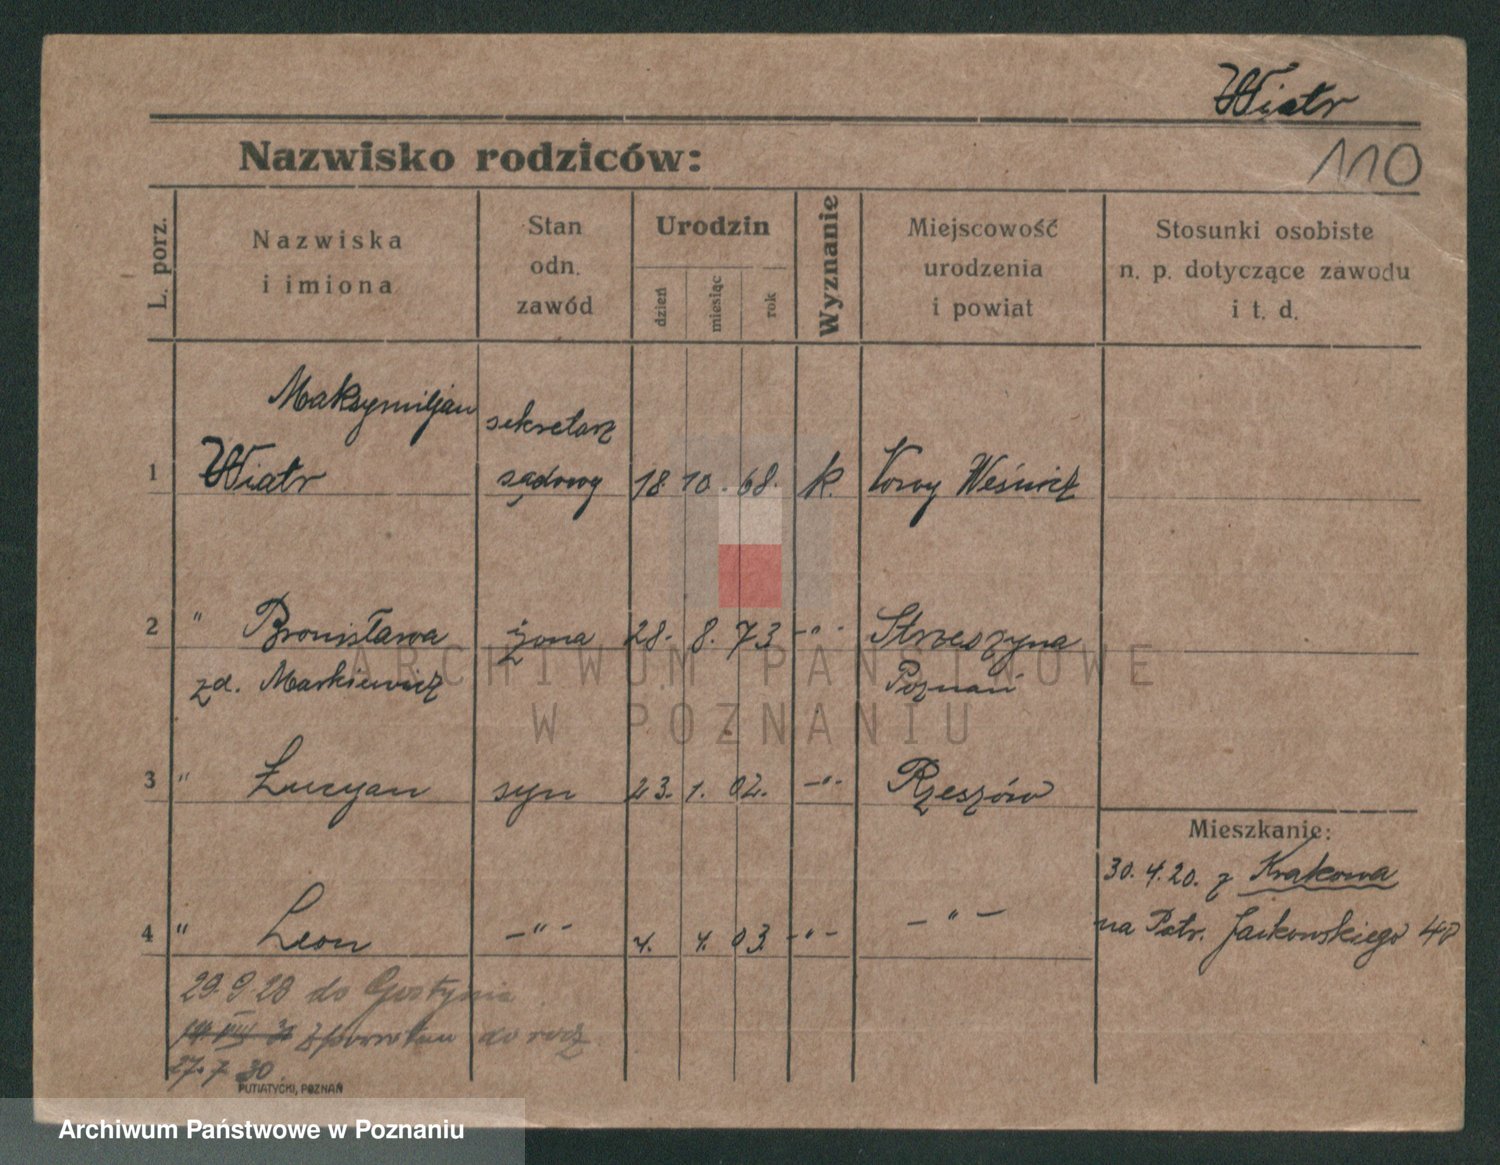 Wiatr
Nazwisko rodziców:
110
L. porz.
Nazwiska
i imiona
Stan
odn.
zawód
Urodzin
dzień
miesiąc
rok
Wyznanie
Miejscowość
urodzenia
i powiat
Stosunki osobiste
n. p. dotyczące zawodu
i t. d.
Maksymiljan sekretarz
1 Wiatr sądowy 18 10. 68. k. Nowy Wiśnicz
2 " Bronisława żona 28. 8. 73 -"- Strzeszyna
zd. Markiewicz Poznań
3 " Łucyan syn 23. 1. 02. -"- Rzeszów
Mieszkanie:
30. 4. 20. z Krakowa
na Patr. Jackowskiego 40
4 " Leon -"- 4. 4. 03. -"- -"-
29.9.28 do Gostynia
z powrotem do rodz.
27. 7 30
PUTIATYCKI, POZNAŃ
ARCHIWUM PAŃSTWOWE
W POZNANIU
Archiwum Państwowe w Poznaniu